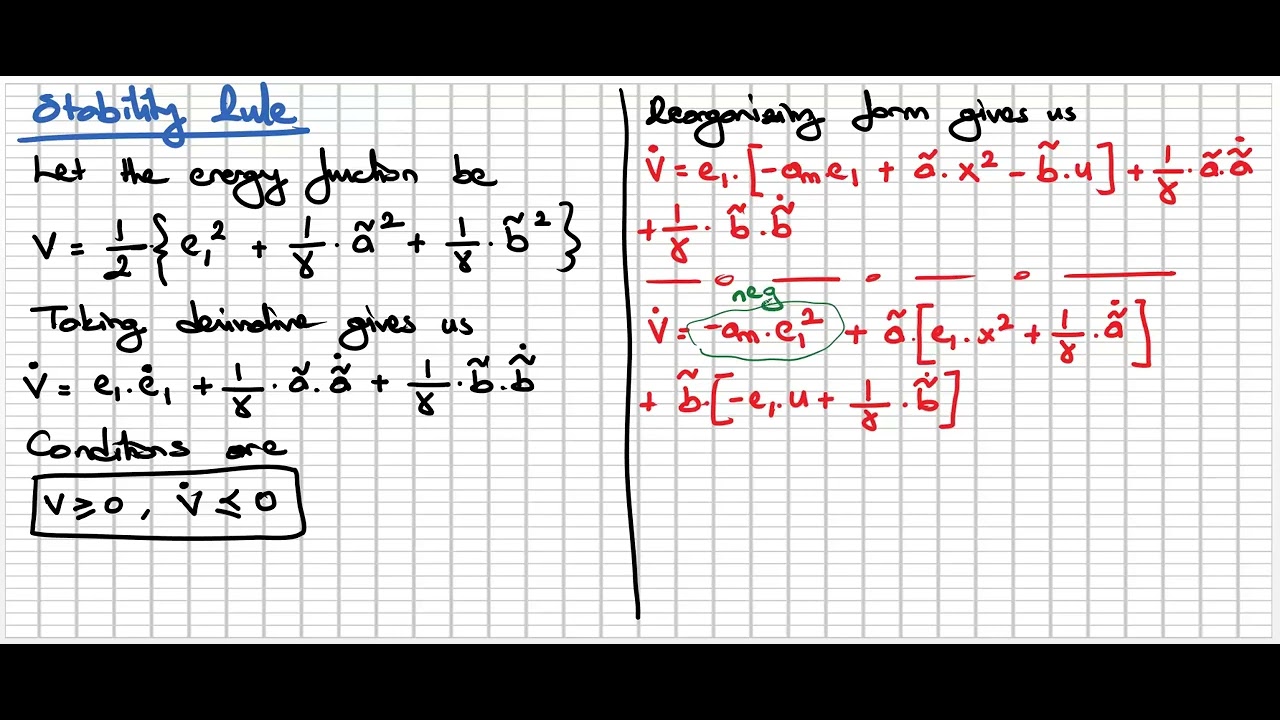 Stability Rule
Let the energy function be
V = 1/2 · { e₁² + 1/γ · ã² + 1/γ · b̃² }
Taking derivative gives us
V̇ = e₁ · ė₁ + 1/γ · ã · ã̇ + 1/γ · b̃ · b̃̇
Conditions are
V ≥ 0 , V̇ ≤ 0
Reorganising form gives us
V̇ = e₁ · [-aₘe₁ + ã · x² - b̃ · u] + 1/γ · ã · ã̇
+ 1/γ · b̃ · b̃̇
neg
V̇ = -aₘ · e₁² + ã · [e₁ · x² + 1/γ · ã̇]
+ b̃ · [-e₁ · u + 1/γ · b̃̇]